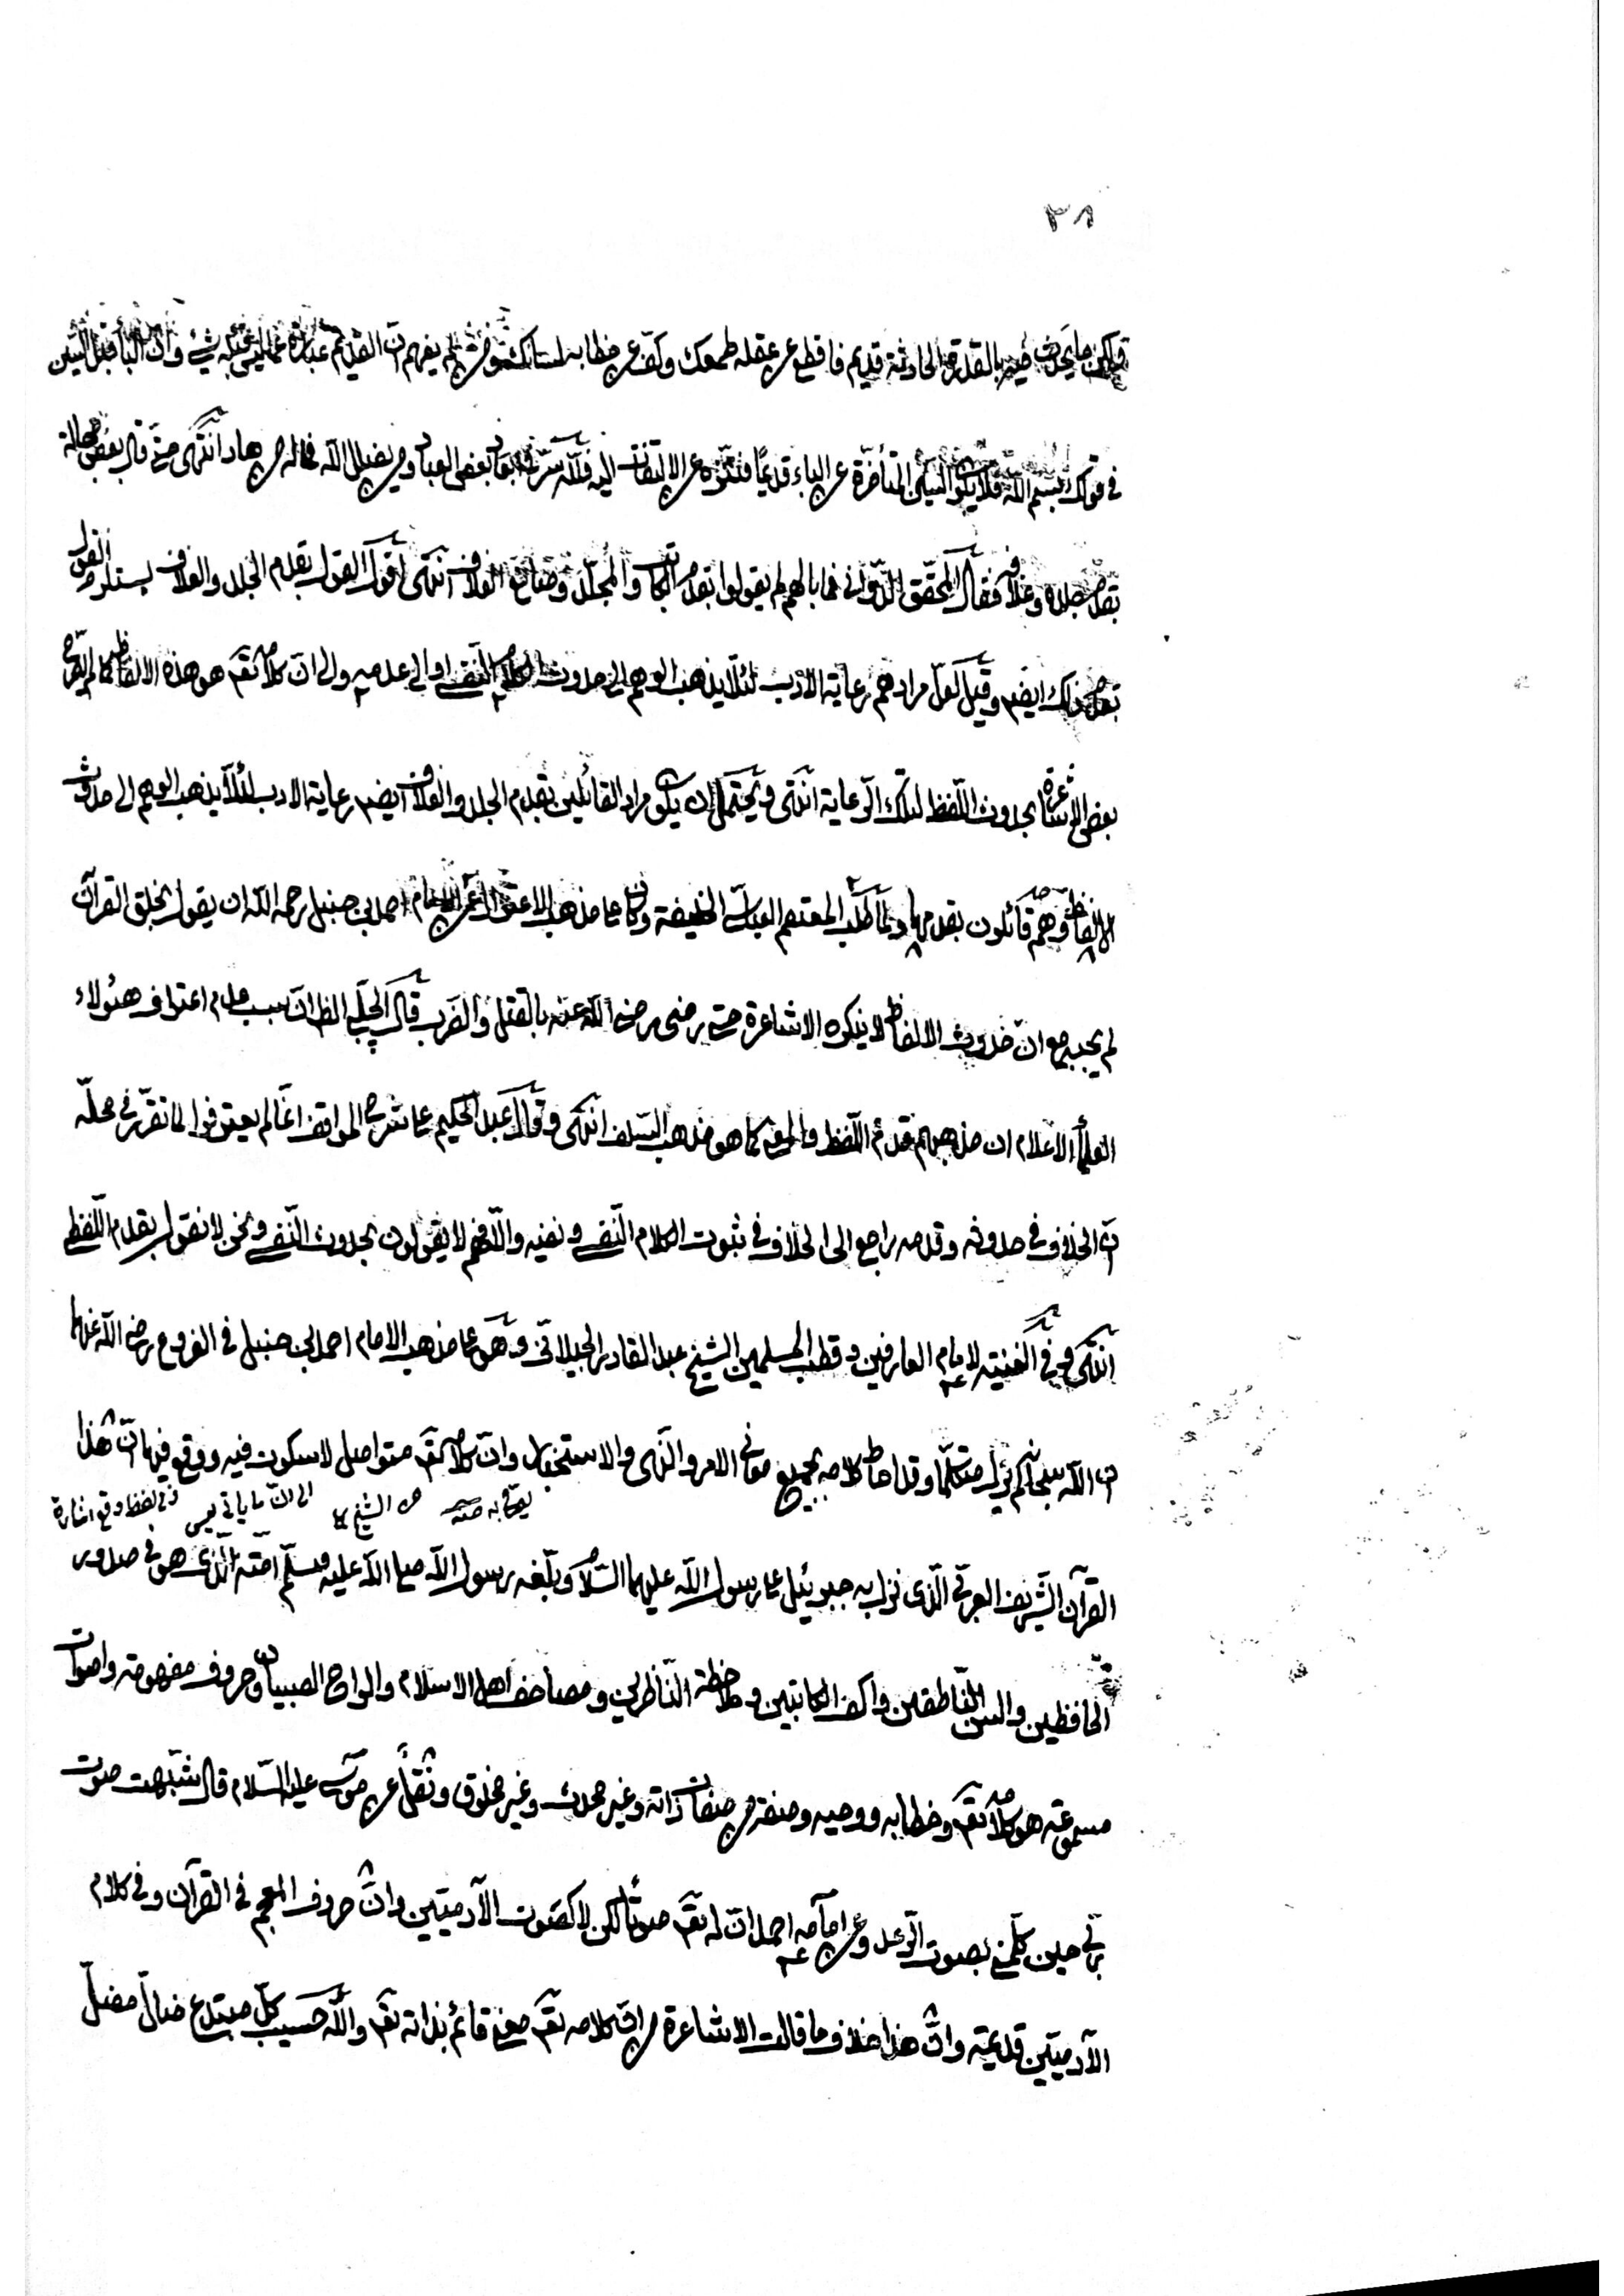 ٣٨
ولكن ما يحدث فيه بالقدرة الحادثة قديم فاقطع عن عقله طمعك وكف عن خطابه لسانك ومن لم يفهم ان القديم عبارة عما ليس قبله شيء وان الباء قبل السين
في قولك بسم الله فلا يكون السين المتأخرة عن الباء قديمًا فنزه عن الالتفات اليه فلله سر في ابعاد بعض العباد ومن يضلل الله فما له من هاد انتهى حتى قال بعض جهالة
بقدم جلده وغلافه فقال المحقق الدواني فما بالهم لم يقولوا بقدم الكاتب والمجلد وصانع الغلاف انتهى أقول القول بقدم الجلد والغلاف يستلزم القول
بقدم ذلك ايضم وقيل لعل مرادهم رعاية الادب لئلا يذهب الوهم الى حدوث الكلام النفسي او الى عدمه والى ان كلامه تقم هو هذه الالفاظ كما لم يصرح
بعض الاشاعرة بحدوث اللفظ لتلك الرعاية انتهى ويحتمل ان يكون مراد القائلين بقدم الجلد والغلاف ايضم رعاية الادب لئلا يذهب الوهم الى حدوث
الالفاظ وهم قائلون بقدمها ولما طلب المعتصم العباسي الخليفة وكان على مذهب الاعتزال عن الامام احمد بن حنبل رحمه الله ان يقول بخلق القرآن
لم يجبه مع ان حدوث الالفاظ لا ينكره الاشاعرة حتى رضى رضي الله عنه بالقتل والضرب قال الجلبي الظ ان سبب عدم اعتراف هؤلاء
العلماء الاعلام ان مذهبهم قدم اللفظ والمعنى كما هو مذهب السلف انتهى وقال عبد الحكيم على شرح المواقف انما لم يعترفوا لما تقرر في محله
ان الخلاف في حدوثه وقدمه راجع الى الخلاف في ثبوت الكلام النفسي ونفيه والا فهم لا يقولون بحدوث النفسي ونحن لا نقول بقدم اللفظي
انتهى وفي الغنية لامام العارفين وقطب المسلمين الشيخ عبد القادر الجيلاني وهو على مذهب الامام احمد بن حنبل في الفروع رضي الله عنهما
ان الله سبحانه لم يزل متكلما وقد احاط كلامه بجميع معاني الامر والنهي والاستخبار وان كلامه تقم متواصل لا سكوت فيه ووقع فيها ان هذا
في لفظ وقع اشارة الى ان ما يأتي ليس من الشيخ
القرآن الشريف العربي الذي نزل به جبرئيل على رسول الله عليهما السلام وبلغه رسول الله صلى الله عليه وسلم امته الذي هو في صدور
الحافظين والسن الناطقين واكف الكاتبين وملاحظة الناظرين ومصاحف اهل الاسلام والواح الصبيان وحروف مفهومة واصوات
مسموعة هو كلامه تقم وخطابه ووحيه وصفة من صفات ذاته وغير محدث وغير مخلوق ونقل عن موسى عليه السلام قال شبهت صوت
ربي حين كلمني بصوت الرعد وعن امامه احمد ان له تقم صوتًا لكن لا كصوت الآدميين وان حروف المعجم في القرآن وفي كلام
الآدميين قديمة وان هذا خلاف ما قالت الاشاعرة من ان كلامه تقم معنى قائم بذاته تقم والله حسيب كل مبتدع ضال مضل